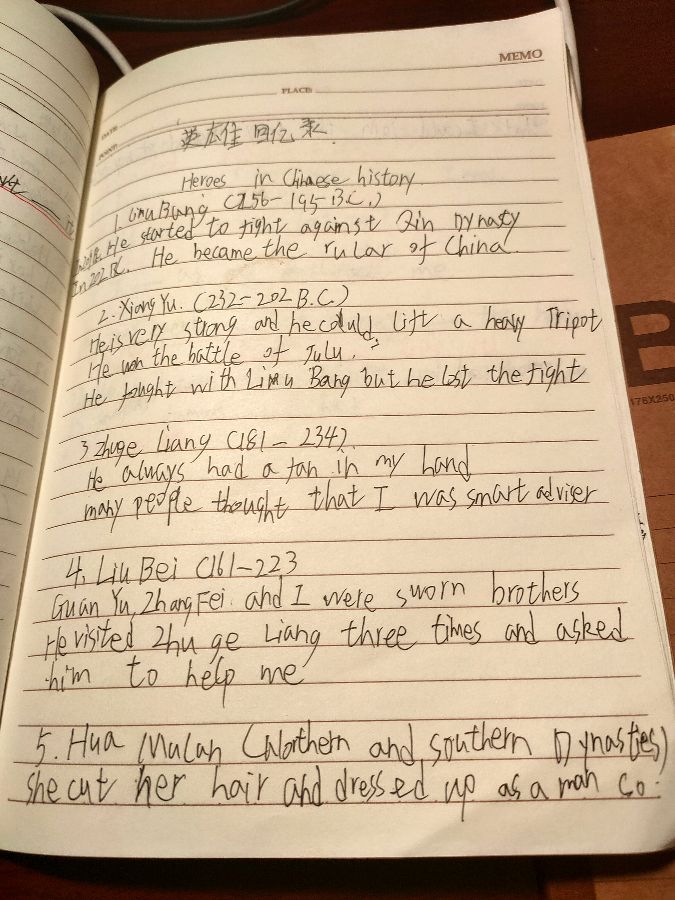 MEMO
PLACE:
DATE:
英雄 回忆录
Heroes in Chinese history
1. Limu Bang (256-195 B.C.)
He started to fight against Qin Dynasty
In 202 BC. He became the rular of China
2. Xiang Yu. (232-202 B.C.)
He is very strong and he could lift a heavy Tripot
He won the battle of Julu.
He fought with Limu Bang but he lost the fight
3 Zhuge Liang (181-234)
He always had a fan in my hand
many people thought that I was smart adviser
4. Liu Bei (161-223
Guan Yu, Zhang Fei. and I were sworn brothers
He visited Zhu ge Liang three times and asked
him to help me
5. Hua Mulan (Northern and southern Dynasties)
she cut her hair and dressed up as a man
B
176X250